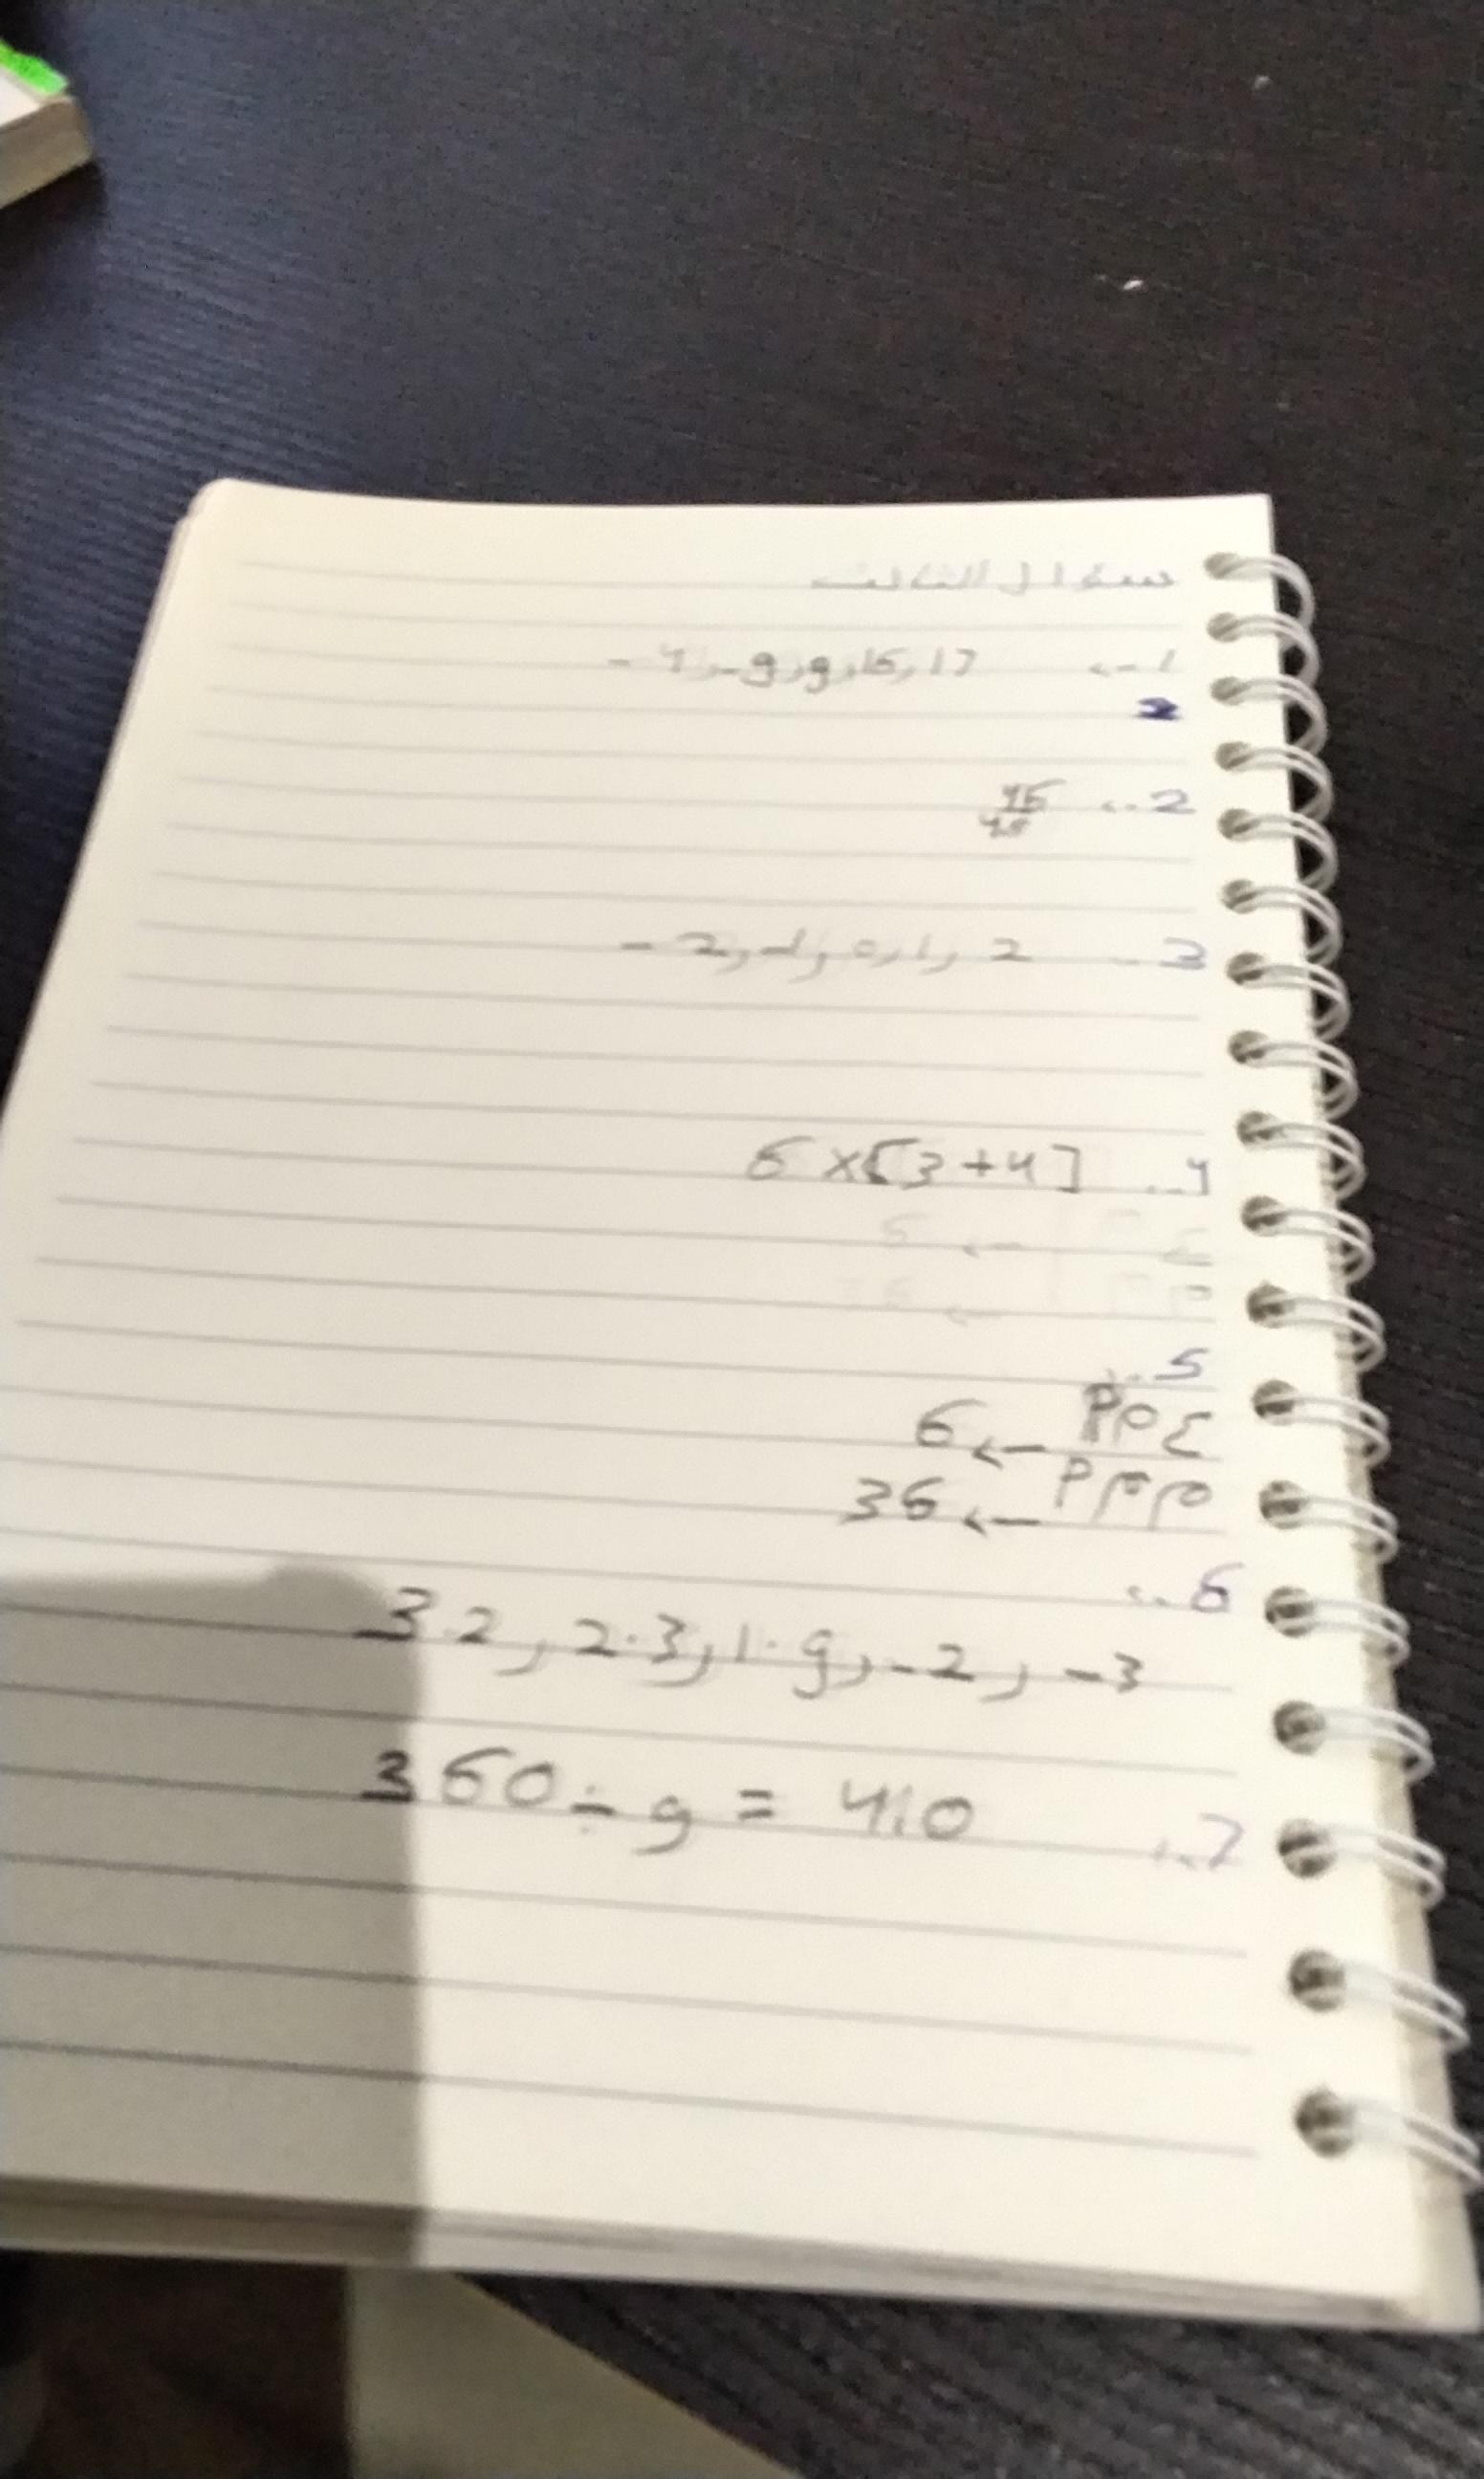 سؤال الثالث
1-> -4,-9,9,15,17
2.. 45
3.. -2,-1,0,1,2
4.. 6 x[3+4]
5..
ع م P -> 6
م م P -> 36
6..
3.2, 2.3, 1.9, -2, -3
7.. 360 ÷ 9 = 40